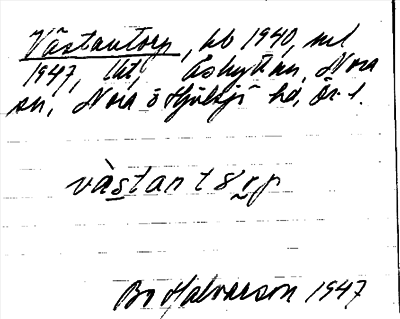 Västantorp, kb 1940, ml
1947, lht, Åshyttan, Nora
sn, Nora o Hjulsjö hd, Ör. l.
vàstant8rp
Bo Halvarson 1947